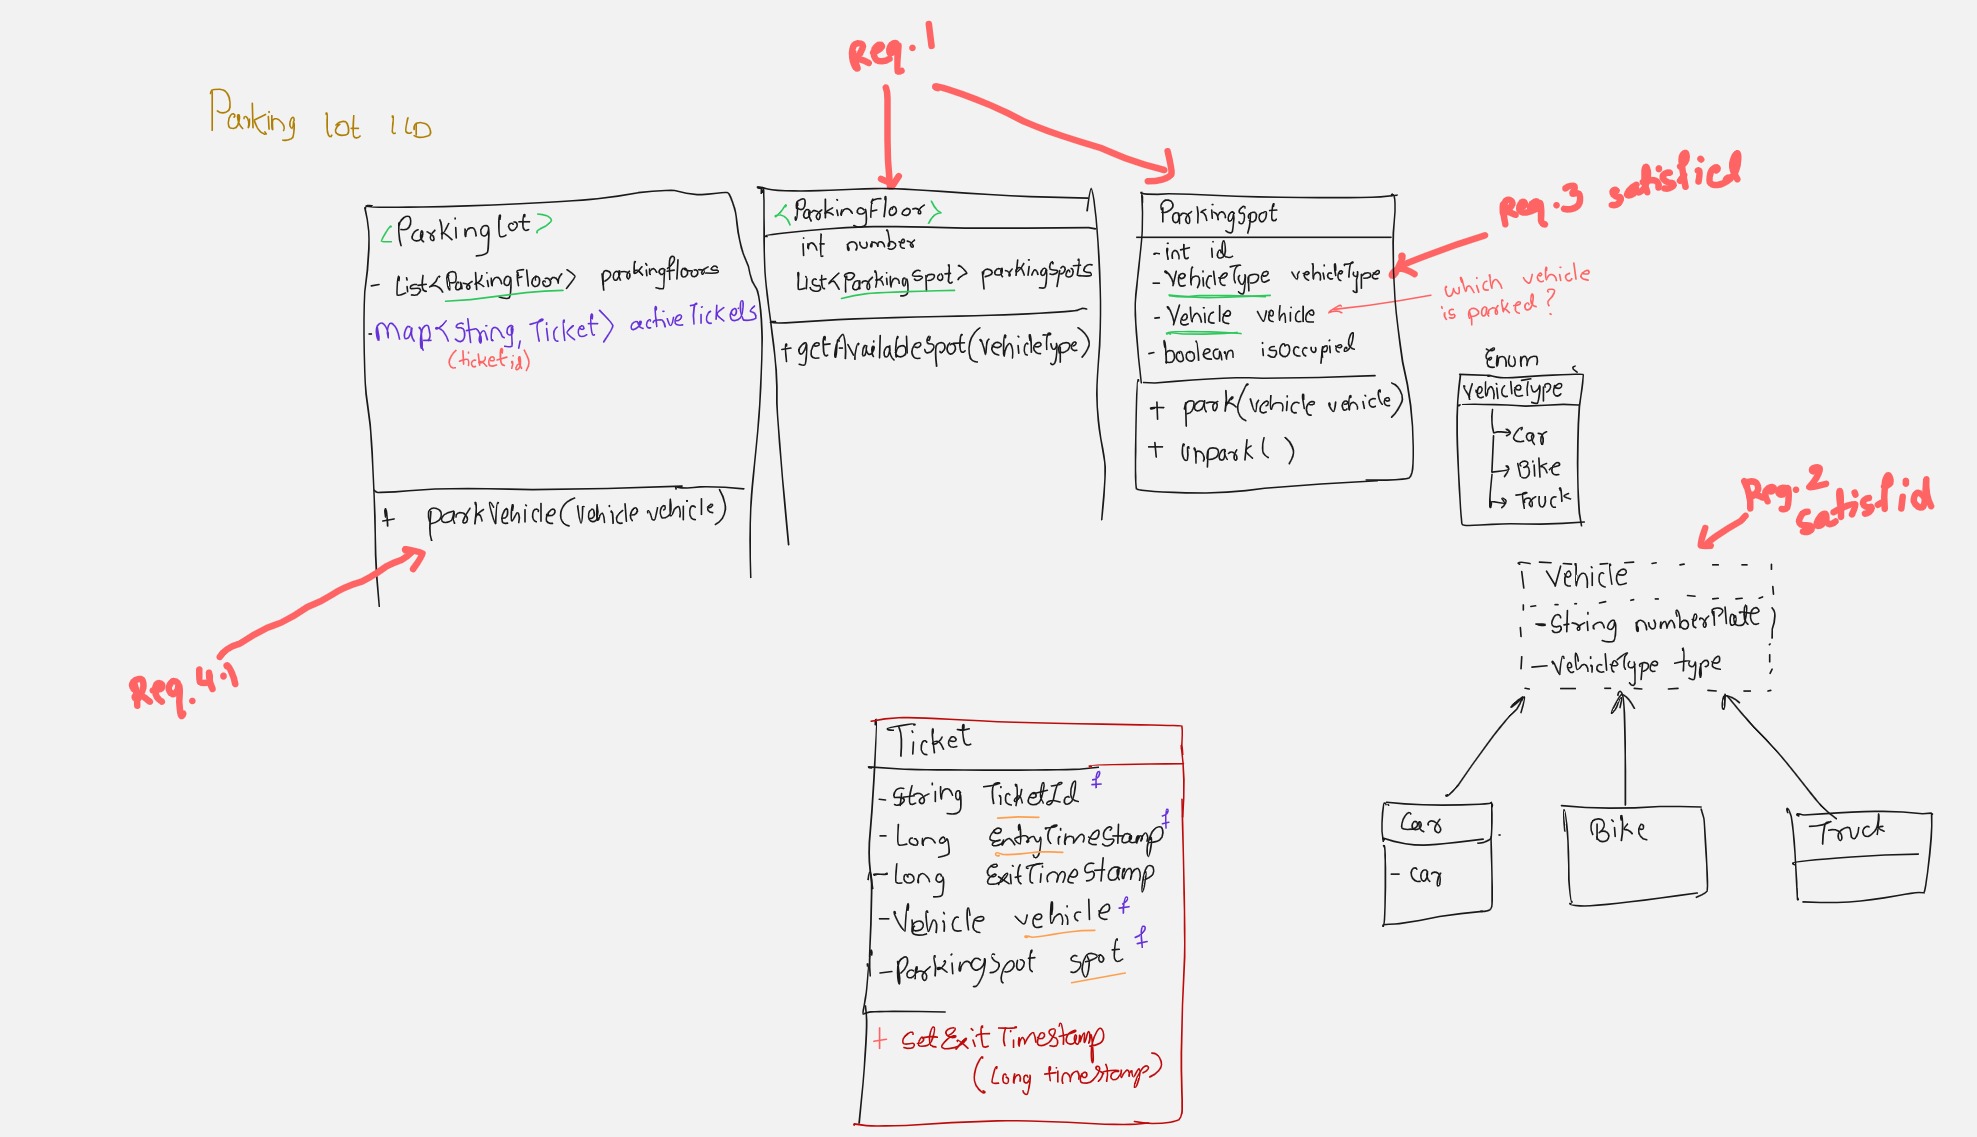 Req. 1
Parking lot LLD
<ParkingLot>
- List<ParkingFloor> parkingfloors
- Map<String, Ticket> activeTickets
(ticket id)
+ parkVehicle(Vehicle vehicle)
Req. 4.1
<ParkingFloor>
int number
List<ParkingSpot> parkingSpots
+ getAvailableSpot(VehicleType)
ParkingSpot
- int id
- VehicleType vehicleType
- Vehicle vehicle
- boolean isOccupied
+ park(Vehicle vehicle)
+ unpark( )
Req. 3 satisfied
which vehicle
is parked?
Enum
VehicleType
Car
Bike
Truck
Req. 2
satisfid
Vehicle
- String numberPlate
- VehicleType type
Car
- car
Bike
Truck
Ticket
- String TicketId f
- Long EntryTimeStamp f
- Long ExitTimeStamp
- Vehicle vehicle f
- ParkingSpot spot f
+ setExitTimestamp
(Long timestamp)